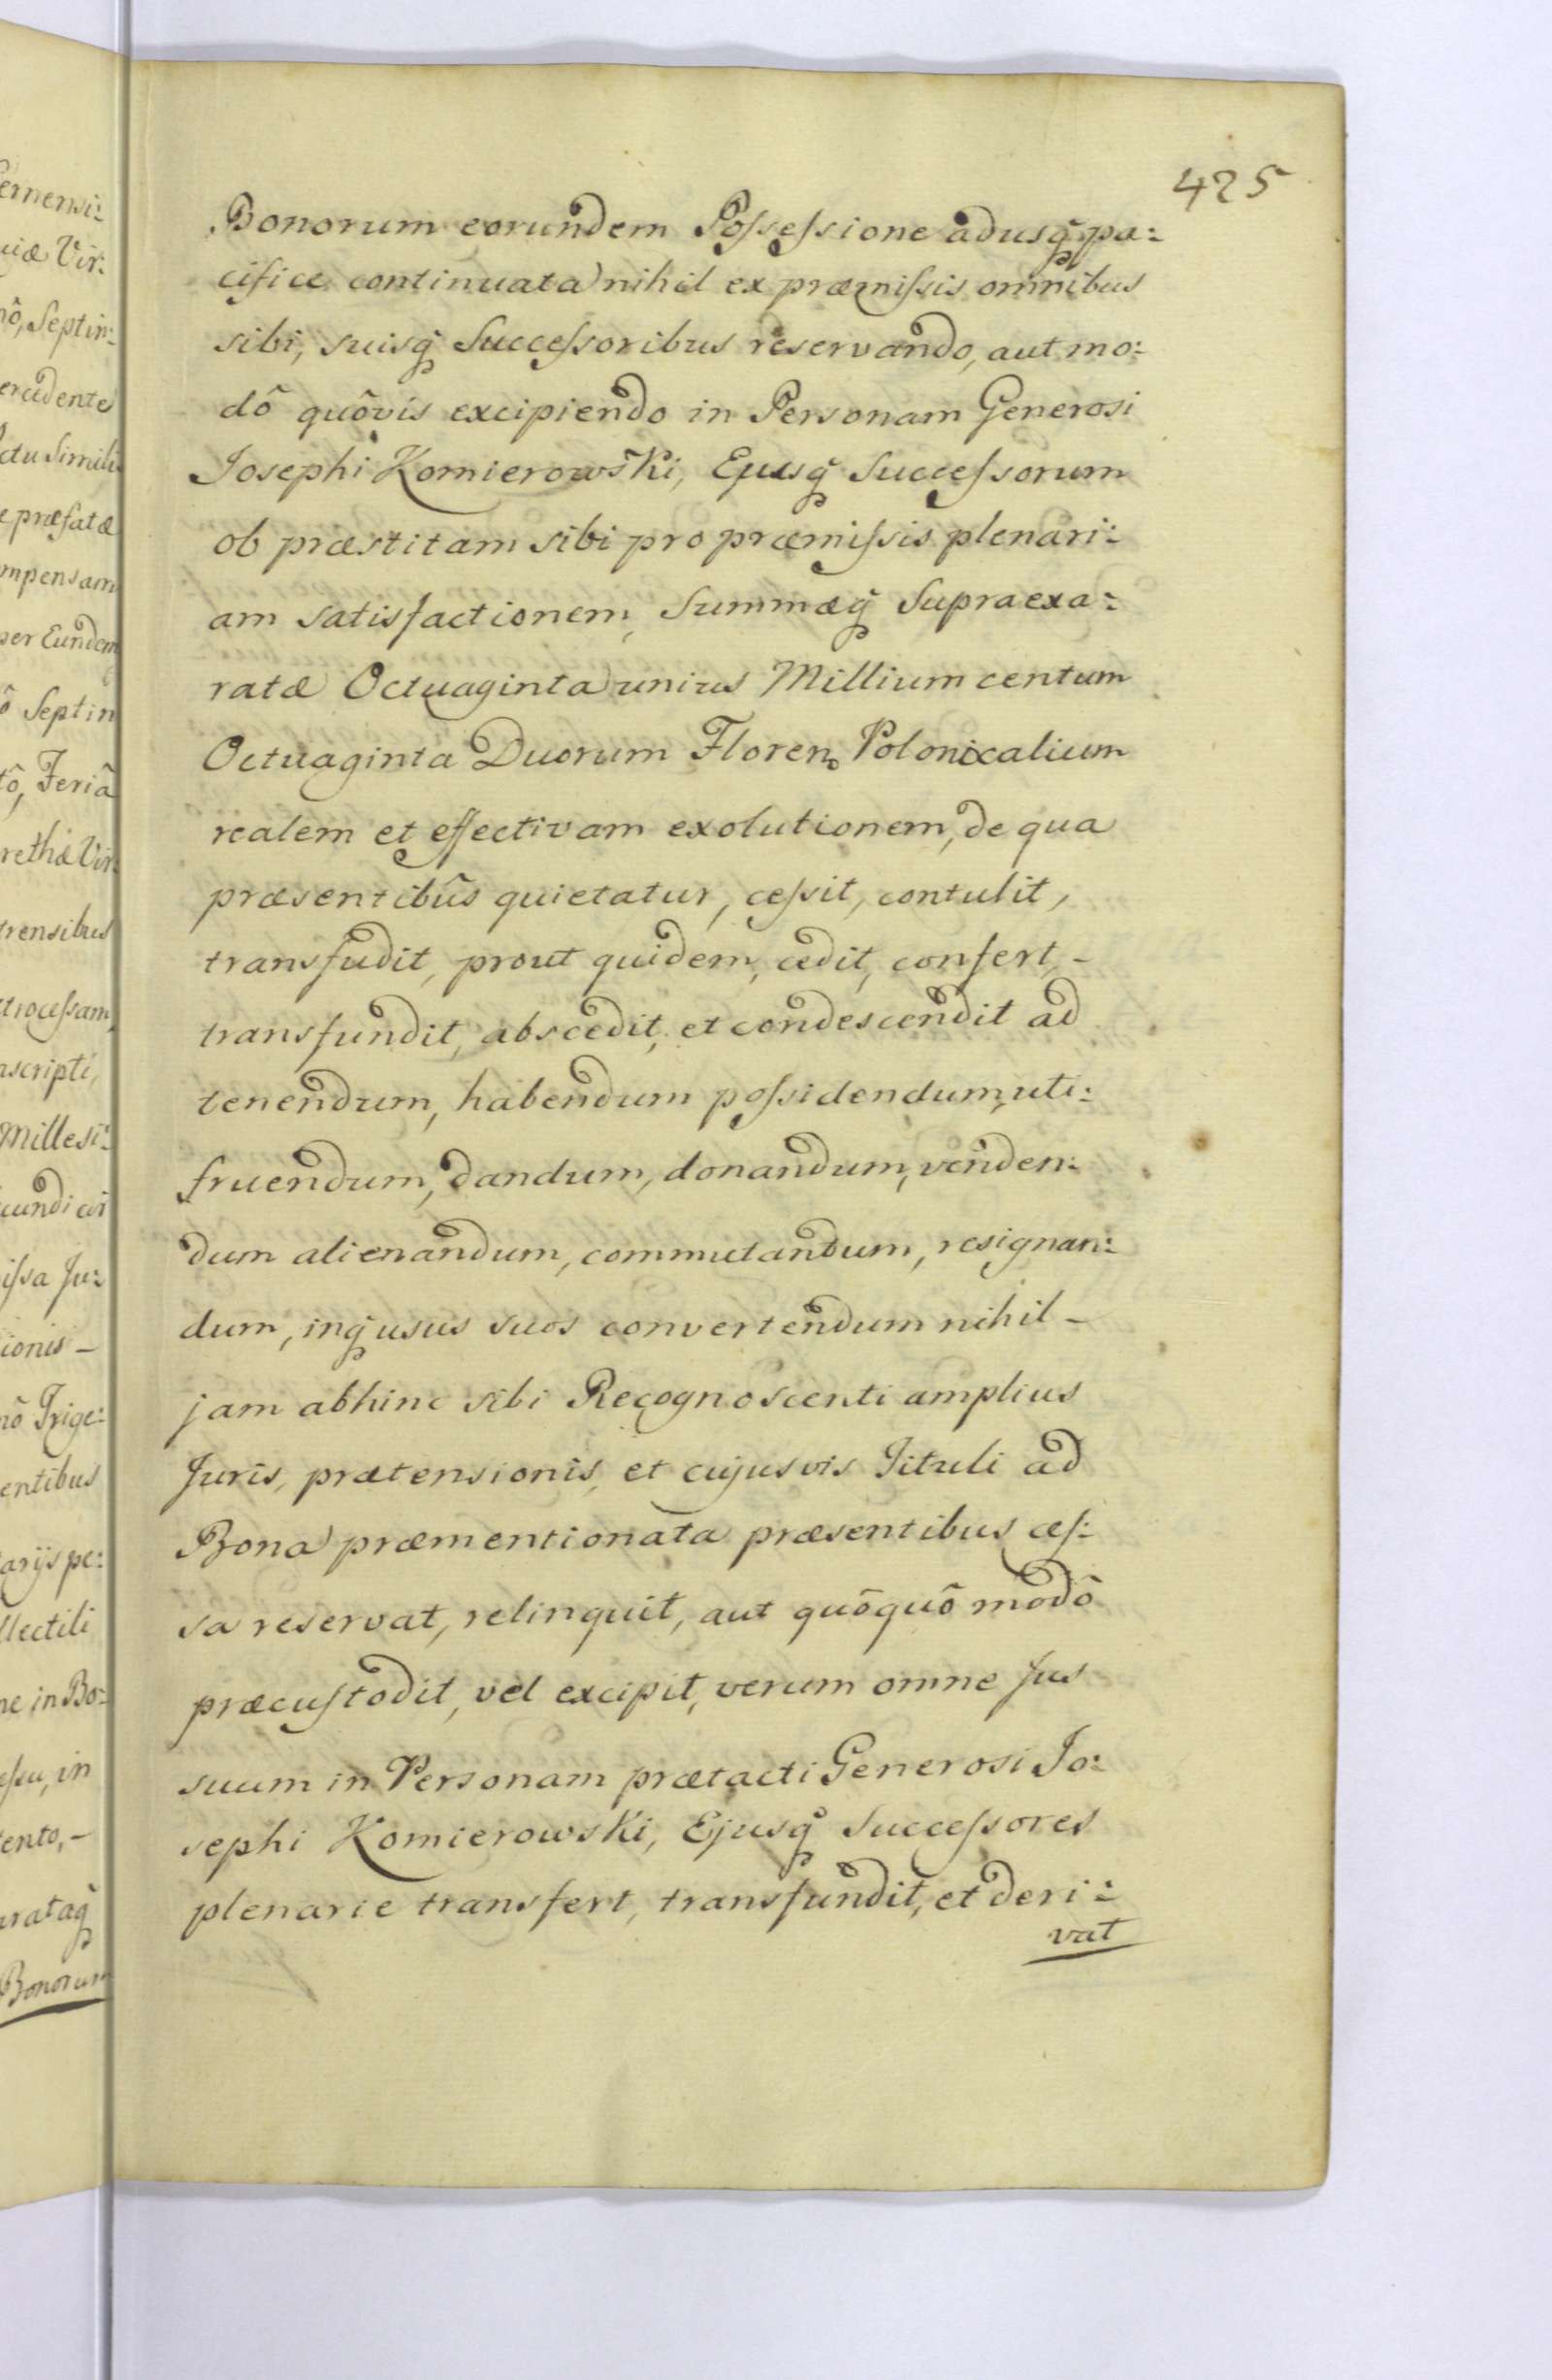 425
Bonorum eorundem Possessione adusq pa:
cifice continuata nihil ex præmissis omnibus
sibi, suisq Successoribus reservando, aut mo:
dô quôvis excipiendo in Personam Generosi
Josephi Komierowski, Ejusq Successorum
ob præstitam sibi pro præmissis plenari:
am satisfactionem, Summæq Supraexa:
ratæ Octuaginta unius Millium centum
Octuaginta Duorum Floren. Polonicalium
realem et effectivam exolutionem, de qua
præsentibûs quietatur, cessit, contulit,
transfudit, prout quidem, cedit, confert, -
transfundit, abscedit, et condescendit ad
tenendum, habendum possidendum, uti:
fruendum, dandum, donandum, venden:
dum alienandum, commutandum, resignan:
dum, inq usus suos convertendum nihil -
jam abhinc sibi Recognoscenti amplius
Juris, prætensionis, et cujusvis Tituli ad
Bona præmentionata præsentibus ces:
sa reservat, relinquit, aut quôquô modô
præcustodit, vel excipit, verum omne Jus
suum in Personam prætacti Generosi Jo:
sephi Komierowski, Ejusq Successores
plenarie transfert, transfundit, et deri:
vat
ernensi:
uiæ Vir:
nô, Septin:
ercedente
ctu Simili
e præfatæ
mpensam
per Eundem
ô Septin
tô, Feriâ
rethæ Vir:
trensibus
trocessam,
ascripti,
Millesi:
cundi
issa Ju:
ionis -
nô Trige:
entibus
arijs pe:
llectili
ne in Bo:
essu, in
ento, -
arataq
Bonorum